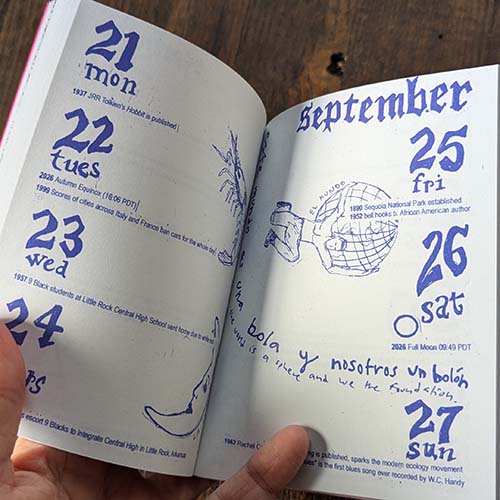 21
mon
1937 JRR Tolkien's Hobbit is published
22
tues
2026 Autumn Equinox (16:05 PDT)
1999 Scores of cities across Italy and France ban cars for the whole day!
23
wed
1957 9 Black students at Little Rock Central High School sent home due to white
24
escort 9 Blacks to Integrate Central High in Little Rock,
September
25
fri
1890 Sequoia National Park established
1952 bell hooks b. African American author
EL MUNDO
26
sat
2026 Full Moon 09:49 PDT
una bola y nosotros un bolón
world is a sphere and we the foundation.
27
sun
1963 Rachel
ng is published, sparks the modern ecology movement
ues" is the first blues song ever recorded by W.C. Handy